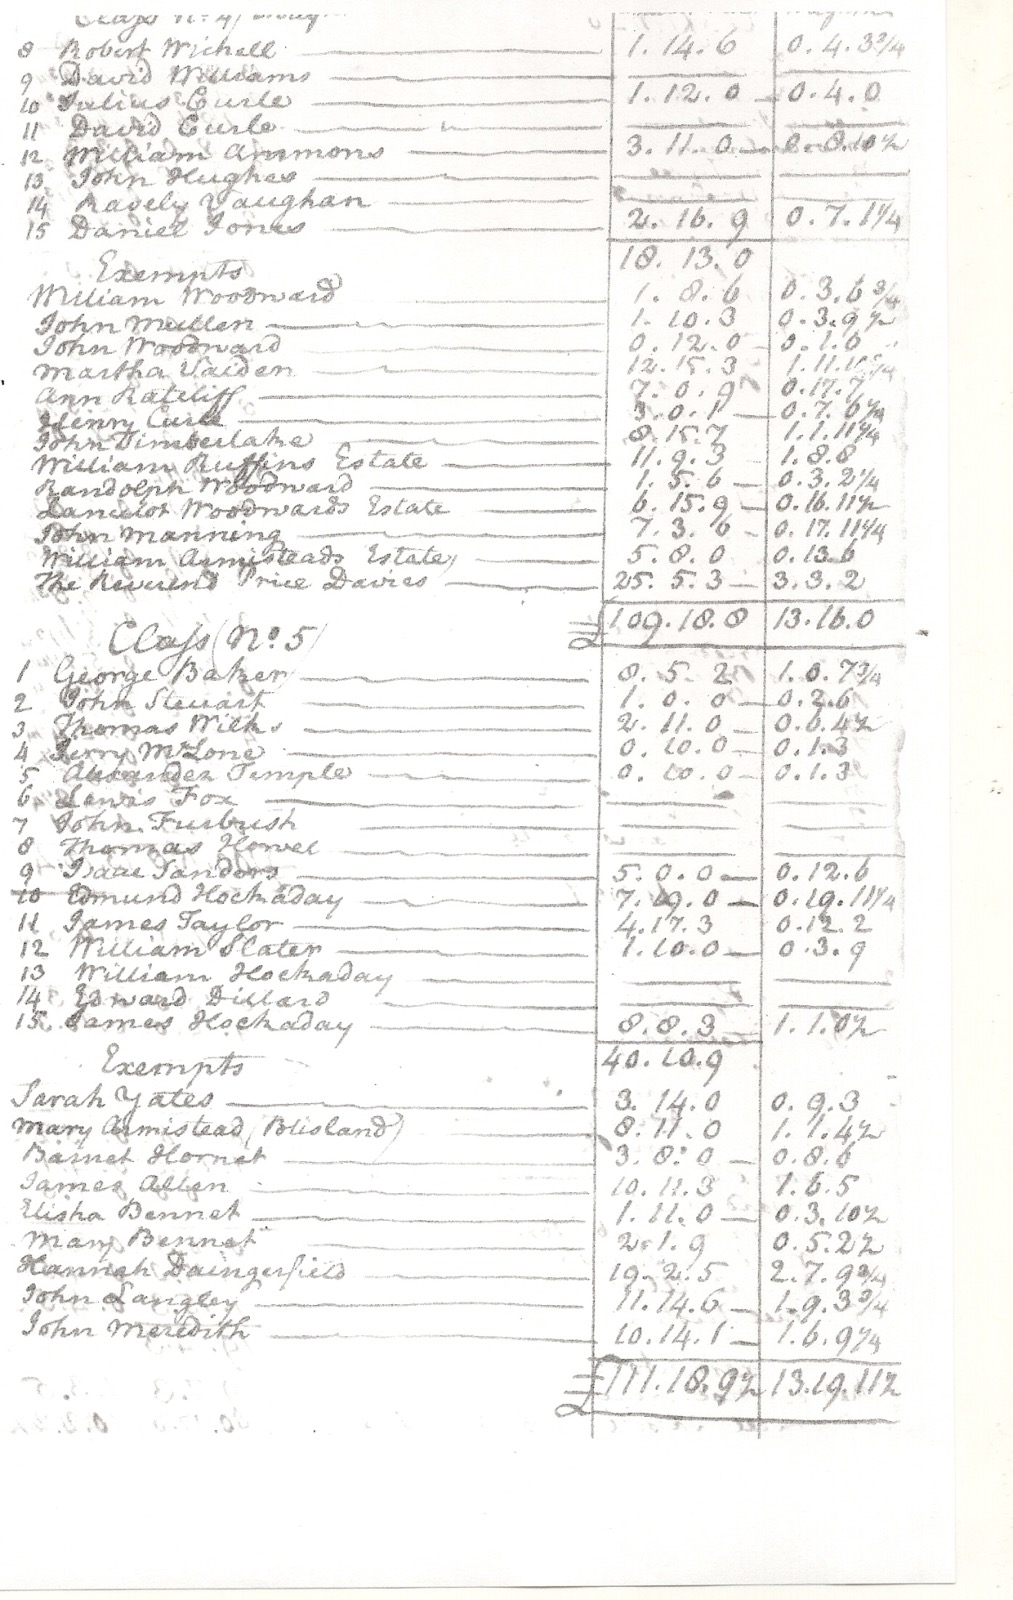 Class No. 4
8 Robert Wichell 1. 14. 6 0. 4. 3 3/4
9 David Williams
10 Julius Curle 1. 12. 0 0. 4. 0
11 David Curle
12 William Ammons 3. 11. 0 0. 8. 10 1/2
13 John Hughes
14 Ravely Vaughan
15 Daniel Jones 2. 16. 9 0. 7. 1 1/4
18. 13. 0
Exempts
William Woodward 1. 8. 6 0. 3. 6 3/4
John Mullen 1. 10. 3 0. 3. 9 1/2
John Woodward 0. 12. 0 0. 1. 6
Martha Vaiden 12. 15. 3 1. 11.
Ann Ratcliff 7. 0. 9 0. 17. 7
Henry Curle 3. 0. 1 0. 7. 6 1/4
John Timberlake 8. 15. 7 1. 1. 11 1/4
William Ruffins Estate 11. 9. 3 1. 8. 8
Randolph Woodward 1. 5. 6 0. 3. 2 1/4
Lancelot Woodwards Estate 6. 15. 9 0. 16. 11 1/2
John Manning 7. 3. 6 0. 17. 11 1/4
William Armisteads Estate 5. 8. 0 0. 13. 6
The Reverend Price Davies 25. 5. 3 3. 3. 2
£109. 18. 8 13. 16. 0
Class (No. 5)
1 George Baker 8. 5. 2 1. 0. 7 3/4
2 John Steuart 1. 0. 0 0. 2. 6
3 Thomas Wilks 2. 11. 0 0. 6. 4 1/2
4 Jerry McLone 0. 10. 0 0. 1. 3
5 Alexander Temple 0. 10. 0 0. 1. 3
6 Lewis Fox
7 John Furbush
8 Thomas Howel
9 Isaac Sanders 5. 0. 0 0. 12. 6
10 Edmund Hockaday 7. 19. 0 0. 19. 11 1/4
11 James Taylor 4. 17. 3 0. 12. 2
12 William Slater 1. 10. 0 0. 3. 9
13 William Hockaday
14 Edward Dillard
15 James Hockaday 8. 8. 3 1. 1. 0 1/2
40. 10. 9
Exempts
Sarah Yates 3. 14. 0 0. 9. 3
Mary Armistead (Blisland) 8. 11. 0 1. 1. 4 1/2
Barnet Hornet 3. 8. 0 0. 8. 6
James Allen 10. 11. 3 1. 6. 5
Elisha Bennet 1. 11. 0 0. 3. 10 1/2
Mary Bennet 2. 1. 9 0. 5. 2 1/2
Hannah Daingerfield 19. 2. 5 2. 7. 9 3/4
John Langley 11. 14. 6 1. 9. 3 3/4
John Meredith 10. 14. 1 1. 6. 9 1/4
£111. 18. 9 1/2 13. 19. 11 1/2